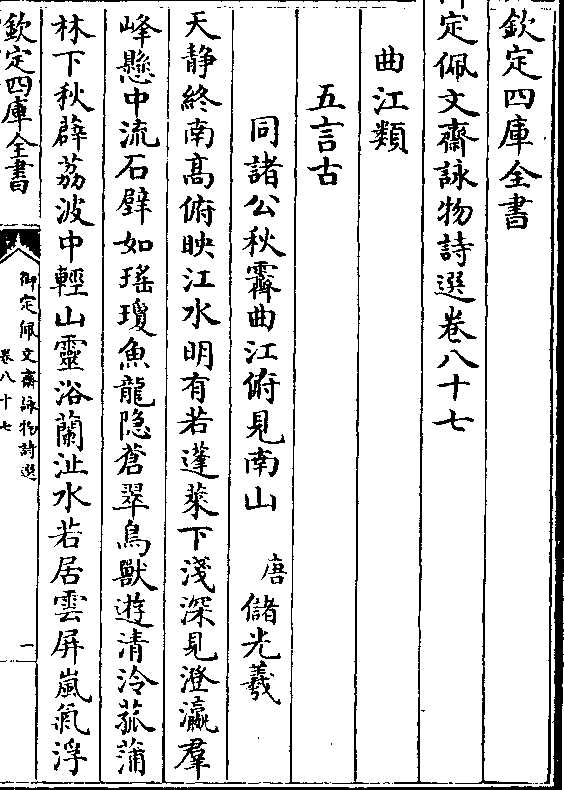 欽定四庫全書
定佩文齋詠物詩選卷八十七
曲江類
五言古
同諸公秋霽曲江俯見南山 唐 儲光羲
天静終南髙俯映江水明有若蓬萊下淺深見澄瀛羣
峰懸中流石壁如瑤瓊魚龍隐蒼翠鳥獸遊清泠菰蒲
林下秋薜荔波中輕山靈浴蘭沚水若居雲屏嵐氣浮
欽定四庫全書
御定佩文齋詠物詩選
卷八十七
一